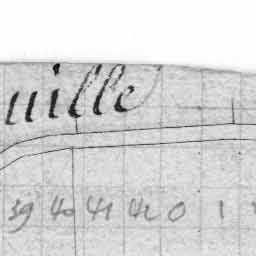 uille
39 40 41 42 0 1